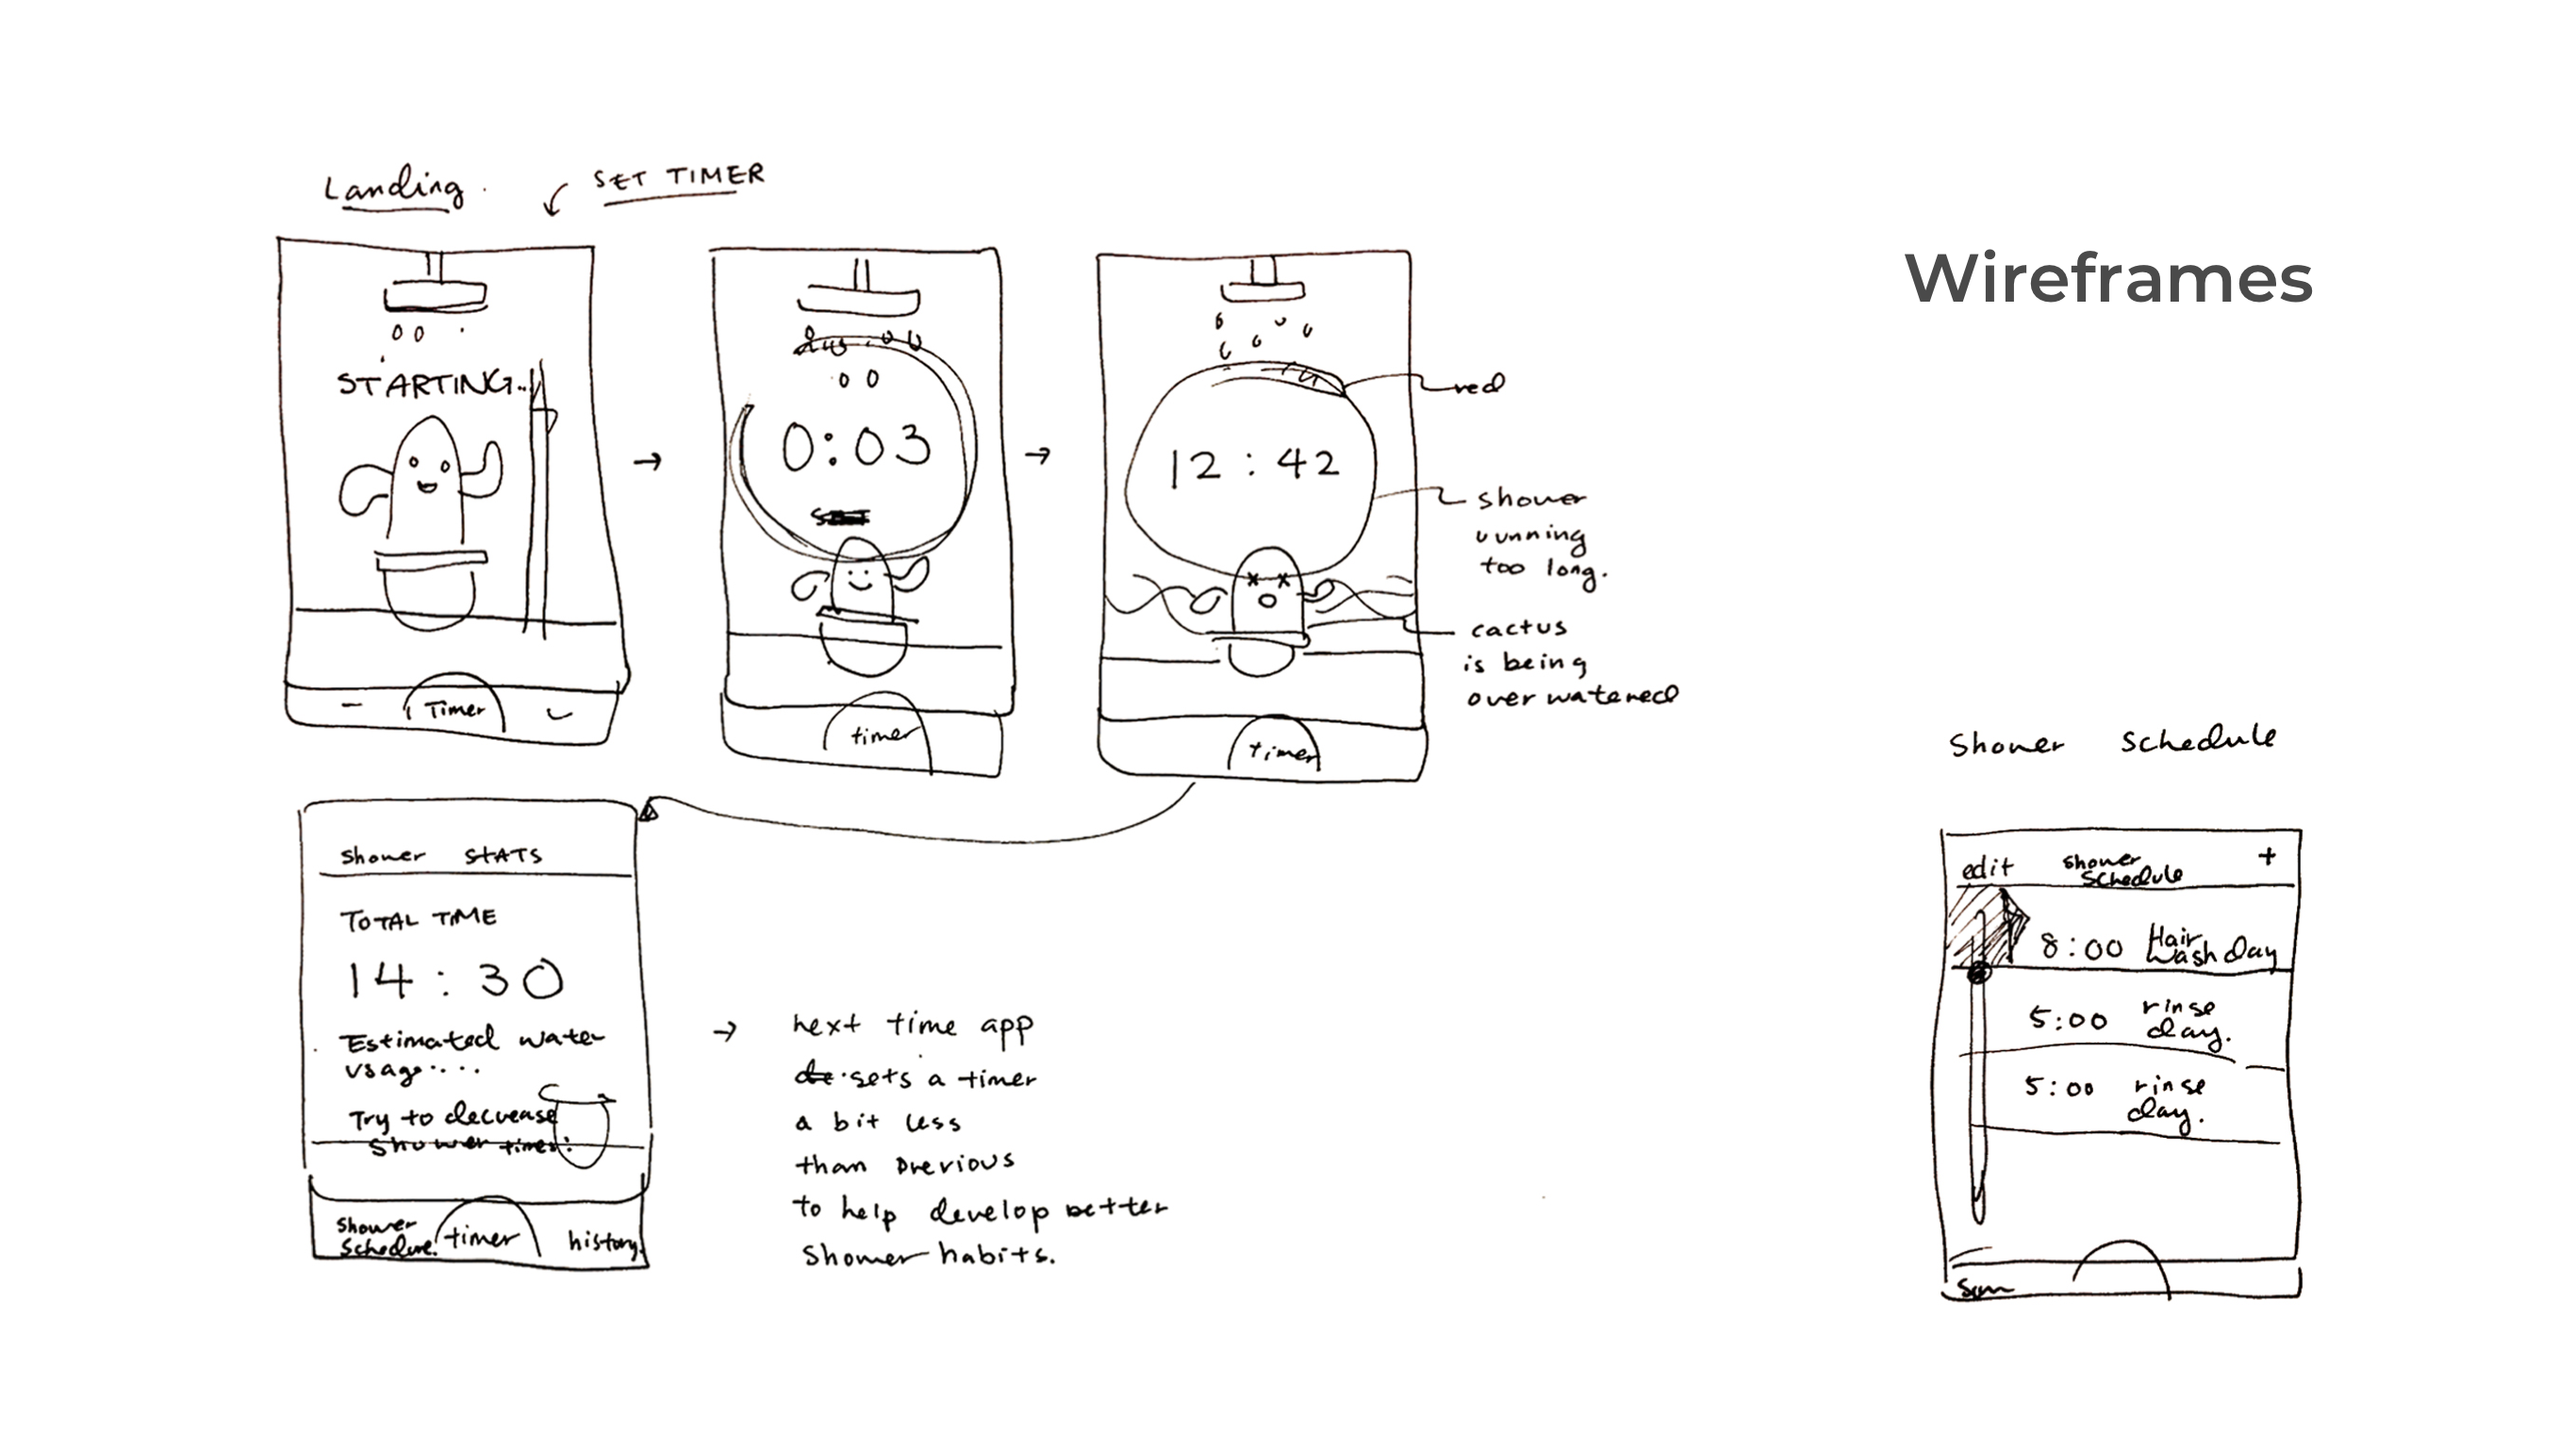 Wireframes
Landing.
SET TIMER
STARTING...
Timer
0:03
timer
12:42
timer
red
shower
running
too long.
cactus
is being
over watered
Shower STATS
TOTAL TIME
14:30
Estimated water
usage....
Try to decrease
shower times!
Shower
Schedule.
timer
history
→ next time app
sets a timer
a bit less
than previous
to help develop better
shower habits.
Shower Schedule
edit
Shower
Schedule
+
8:00 Hair
Wash day
5:00 rinse
day.
5:00 rinse
day.